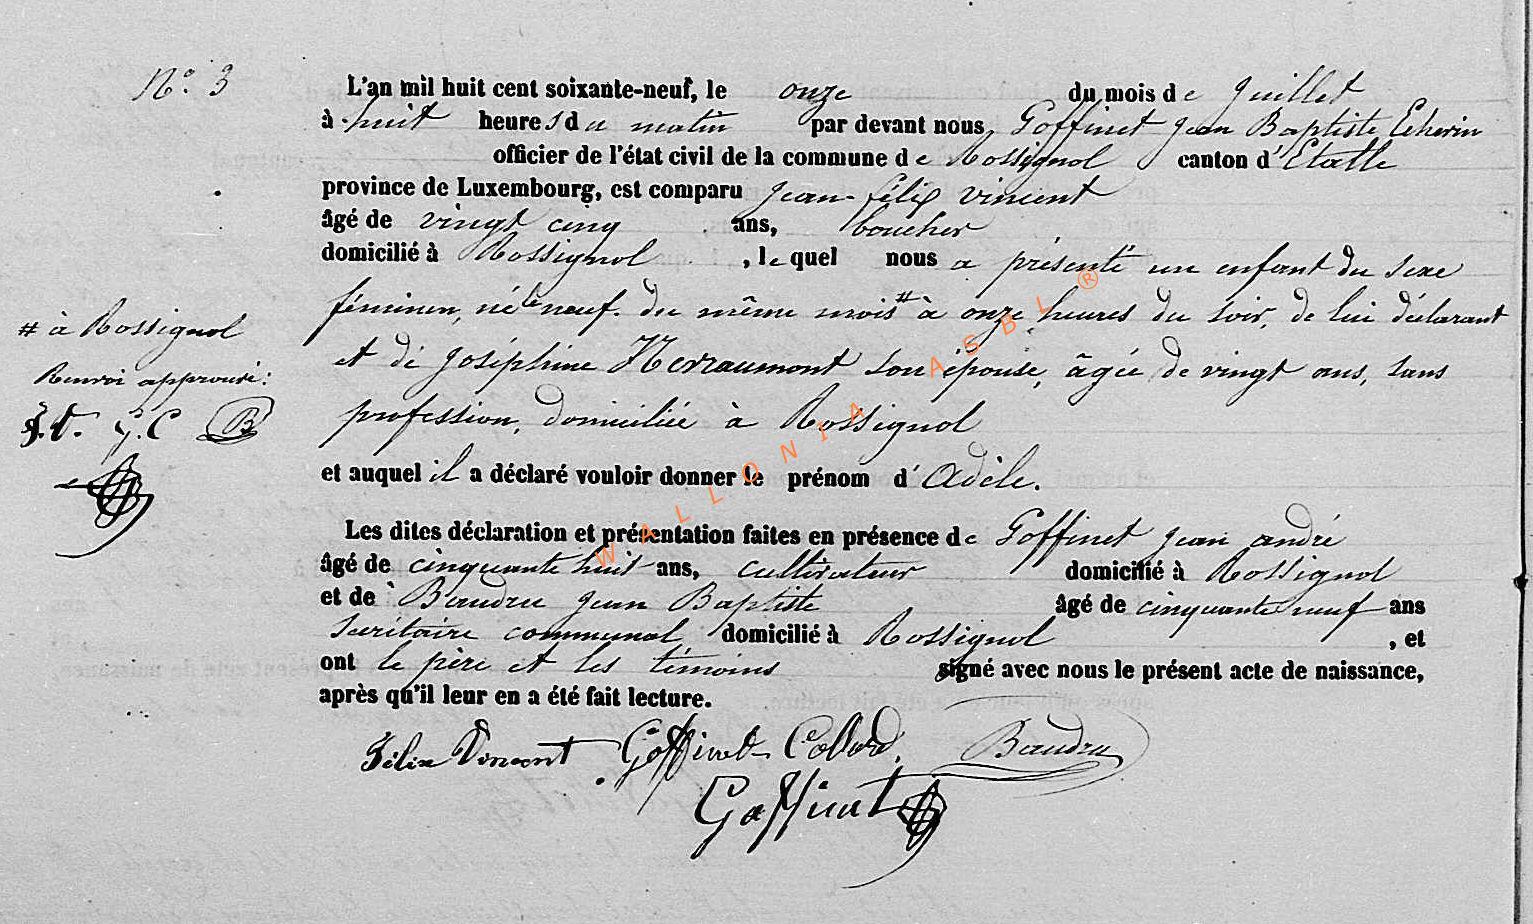 N°. 3
L'an mil huit cent soixante-neuf, le onze du mois de Juillet
à huit heures du matin par devant nous, Goffinet Jean Baptiste, Echevin
officier de l'état civil de la commune de Rossignol canton d'Etalle
province de Luxembourg, est comparu Jean-félix vincent
âgé de vingt cinq ans, boucher
domicilié à Rossignol, lequel nous a présenté un enfant du sexe
féminin, né le neuf du même mois # à onze heures du soir, de lui déclarant
et de Joséphine Herraumont son épouse, âgée de vingt ans, sans
profession, domiciliée à Rossignol
et auquel il a déclaré vouloir donner le prénom d'Adèle.
Les dites déclaration et présentation faites en présence de Goffinet Jean andré
âgé de cinquante huit ans, cultivateur domicilié à Rossignol
et de Baudru Jean Baptiste âgé de cinquante neuf ans
secrétaire communal domicilié à Rossignol, et
ont le père et les témoins signé avec nous le présent acte de naissance,
après qu'il leur en a été fait lecture.
# à Rossignol
Renvoi approuvé:
f.V. g.C B
Félix Vincent Goffinet Collard, Baudru
Goffinet
WALLONIA ASBL ®